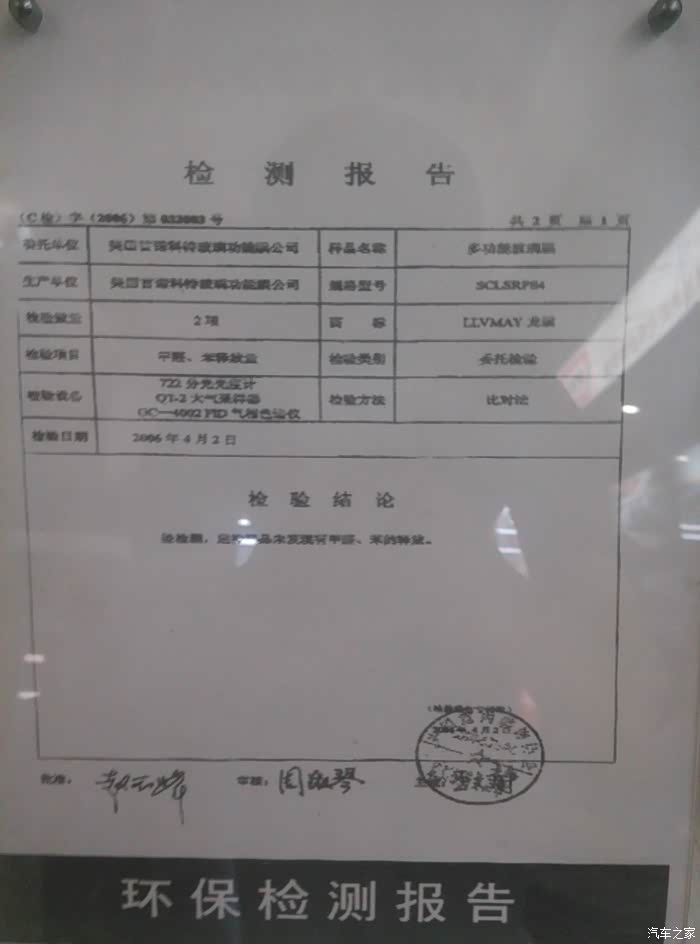 检 测 报 告
(C检)字(2006)第032003号 共 2 页 第 1 页
委托单位 美国 科特玻璃功能膜公司 样品名称 多功能玻璃膜
生产单位 美国 科特玻璃功能膜公司 规格型号 SCLSRPS4
检验数量 2项 商 标 LLVMAY 龙膜
检验项目 甲醛、苯释放量 检验类别 委托检验
检验设备 722 分光光度计
QT-2 大气采样器
GC—4002 FID 气相色谱仪 检验方法 比对法
检验日期 2006 年 4 月 2 日
检 验 结 论
经检测,送检样品未发现有甲醛、苯的释放。
2006年 4 月 2 日
批准: 审核:
环保检测报告
汽车之家